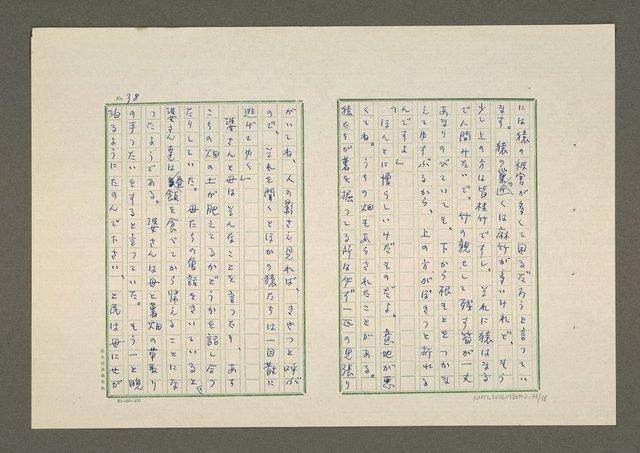 には猿の被害が多くて困るだろうと言ってい
ます。猿の巣の近くは麻竹が多いけれど、もう
少し上の方は皆桂竹ですし、それに猿はまる
で人間みたいで、竹の親として残す筍が一丈
あまりのびていても、下から根もとをつかな
えてゆすぶるから、上の方がぽきっと折れる
んですよ」
「ほんとに憎らしいけだものだよ。意地が悪
くてね。うちの畑もあらされたことがある。
猿たちが薯を掘ってる所は必ず一匹の見張り
No. 38
がいてね、人の影さえ見れば、きゃっと呼ぶ
ので、それを聞くとほかの猿たちは一目散に
逃げてゆく」
婆さんと母はそんなことを言ったり、あち
こちの畑の土が肥えてるかどうかを話し合っ
たりしていた。母たちの会話をきいていると、
婆さん達は昼飯を食べてから帰えることにな
ったようである。婆さんは母と薯畑の草取り
の手つだいをすると言っていた。もう一と晩
泊るようにたのんで下さい、と民は母にせが
NMTL20060980002.38/58